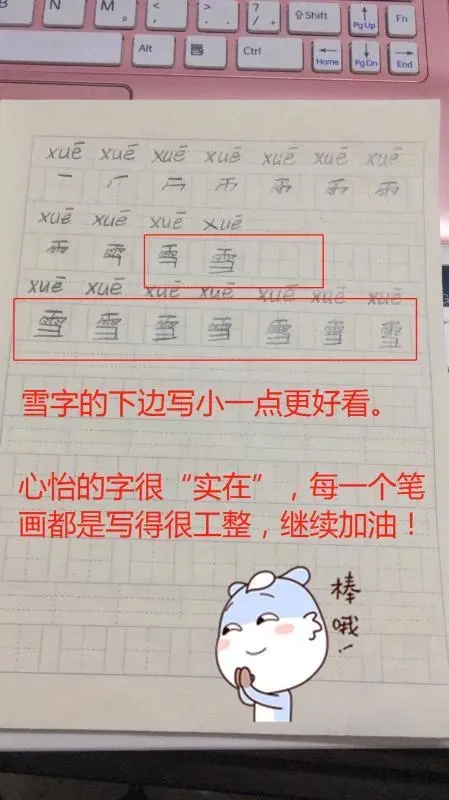 B N M < , > . ? / ⇧Shift ↑ PgUp Fn
Alt Ctrl ← Home ↓ PgDn → End
xuē xuē xuē xuē xuē xuē xuē
xuē xuē xuē xuē
雪 雪
xuē xuē xuē xuē xuē xuē xuē
雪 雪 雪 雪 雪 雪 雪
雪字的下边写小一点更好看。
心怡的字很“实在”，每一个笔
画都是写得很工整，继续加油！
棒
哦!